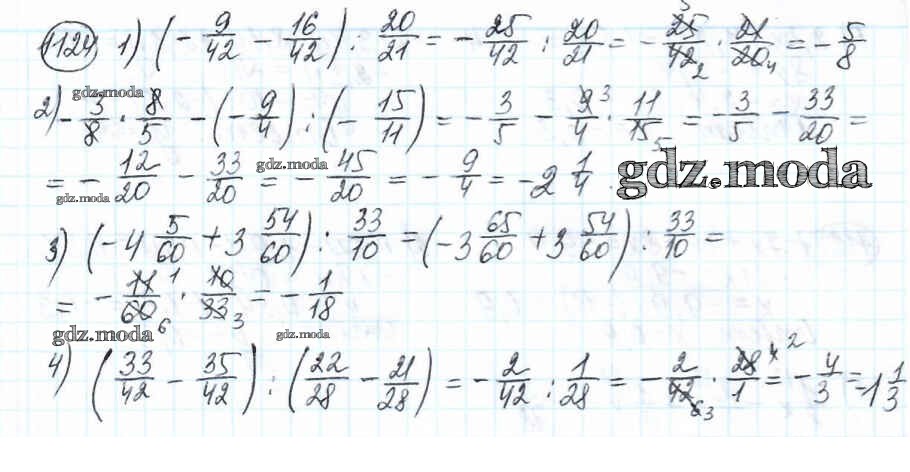 1124 1) (- 9/42 - 16/42) : 20/21 = - 25/42 : 20/21 = - 25/42 · 21/20 = - 5/8
gdz.moda
2) - 3/8 · 8/5 - (- 9/4) : (- 15/11) = - 3/5 - 9/4 · 11/15 = - 3/5 - 33/20 =
= - 12/20 - 33/20 = - 45/20 = - 9/4 = - 2 1/4 .
gdz.moda
gdz.moda
gdz.moda
3) (- 4 5/60 + 3 54/60) : 33/10 = (- 3 65/60 + 3 54/60) : 33/10 =
= - 11/60 · 10/33 = - 1/18
gdz.moda
gdz.moda
4) (33/42 - 35/42) : (22/28 - 21/28) = - 2/42 : 1/28 = - 2/42 · 28/1 = - 4/3 = - 1 1/3